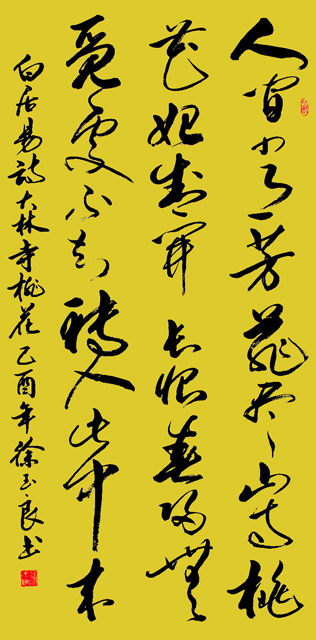 人間四月芳菲盡山寺桃
花始盛開長恨春歸無
覓處不知轉入此中來
白居易詩大林寺桃花乙酉年徐玉良書